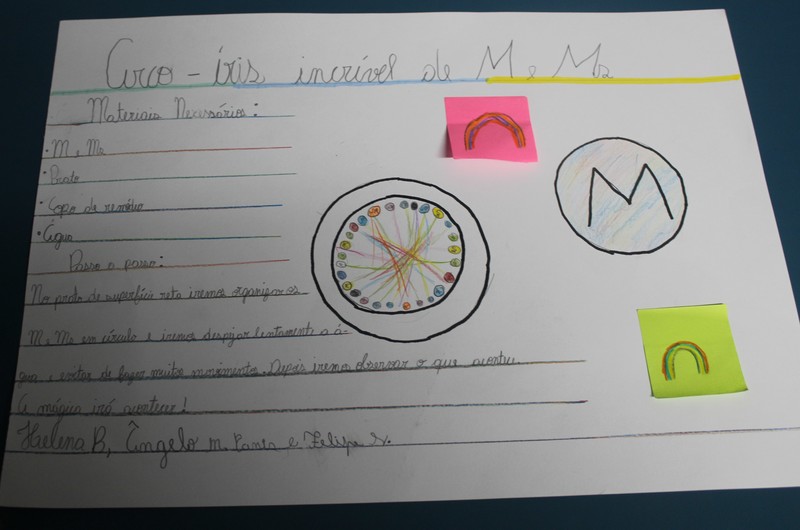 Arco-íris incrível de M e Ms
Materiais Necessários:
• M e Ms
• Prato
• Copo de remédio
• Água
Passo a passo:
No prato de superfície reta iremos organizar os
M e Ms em círculo e iremos despejar lentamente a á-
gua e evitar de fazer muitos movimentos. Depois iremos observar o que acontece.
A mágica irá acontecer!
Haelena B, Ângelo m. e Felipe S.
M